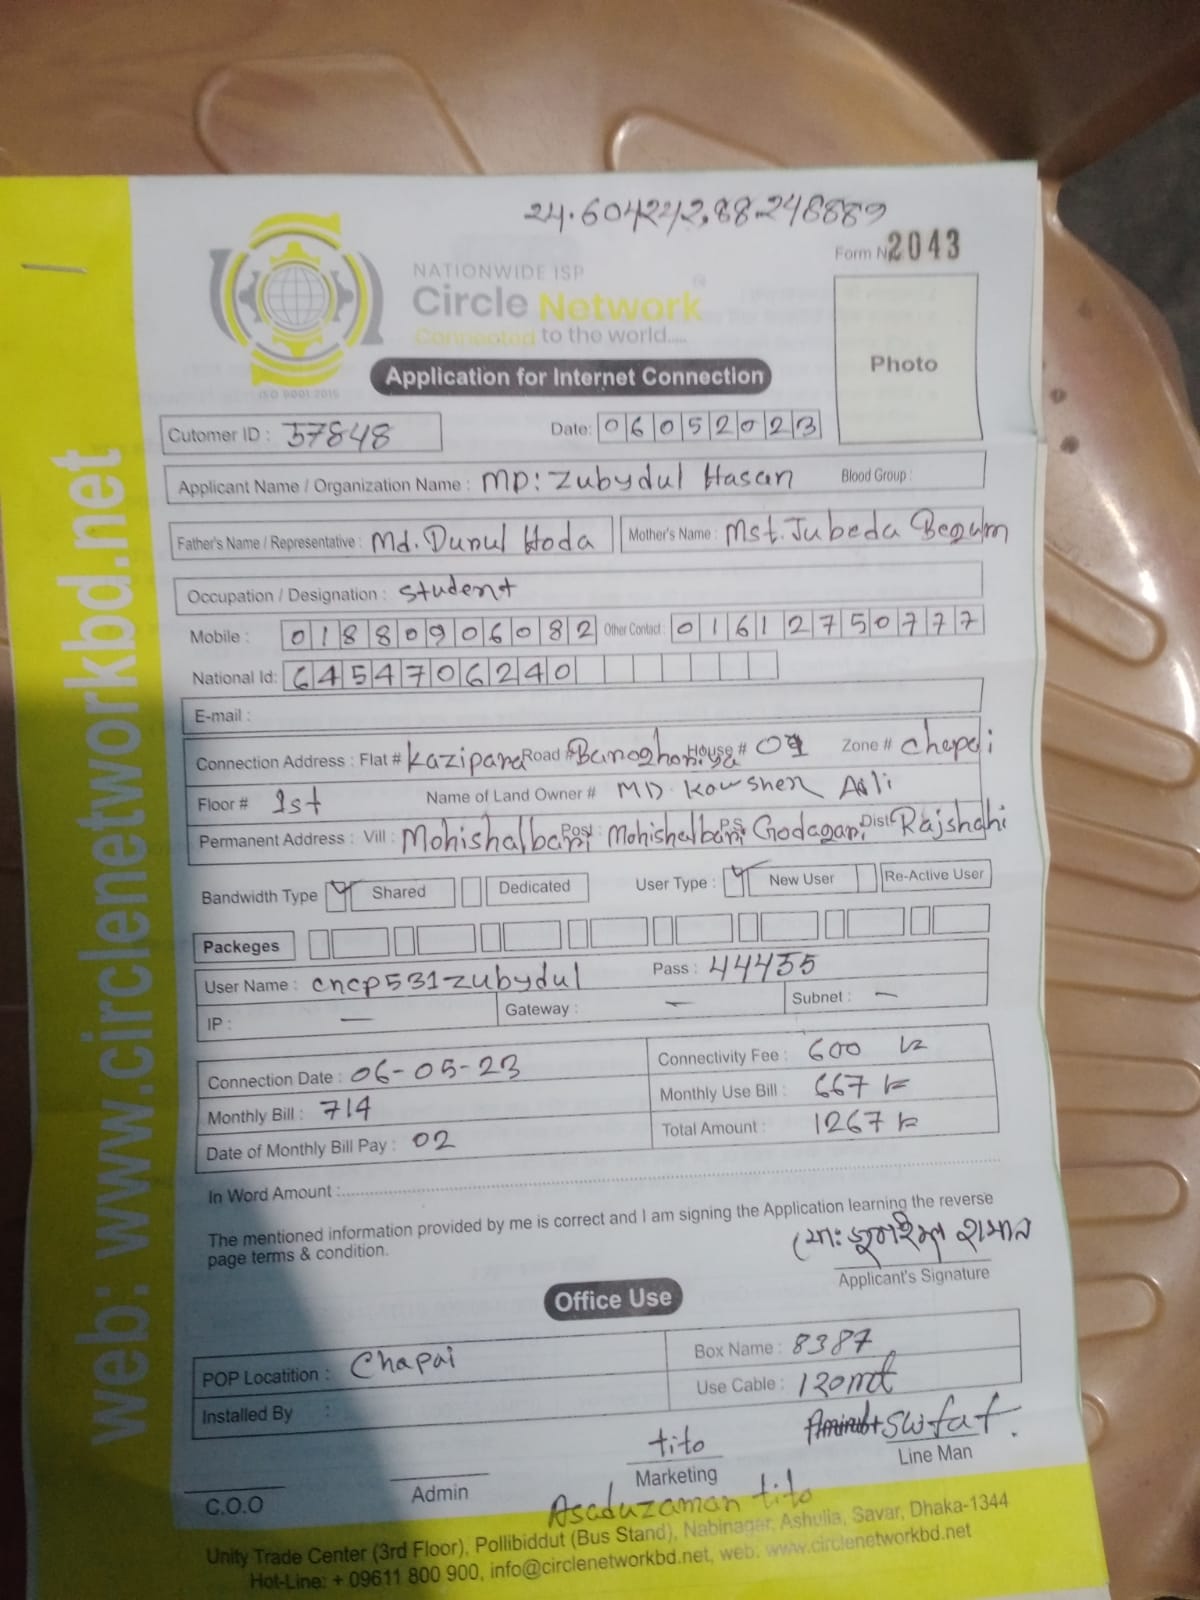 24.604242,88.248889
Form No 2043
NATIONWIDE ISP
Circle Network
Connected to the world.....
ISO 9001:2015
Photo
Application for Internet Connection
Cutomer ID : 37848 Date: 06052023
Applicant Name / Organization Name : MD: Zubydul Hasan Blood Group :
Father's Name / Representative : Md. Durul Hoda Mother's Name : Mst. Jubeda Begum
Occupation / Designation : Student
Mobile : 01880906082 Other Contact : 01612750777
National Id: 6454706240
E-mail :
Connection Address : Flat # Kazipara Road # House # Zone # Chapai
Floor # 1st Name of Land Owner # MD. Kowsher Ali
Permanent Address : Vill : Mohishalbari Post : Mohishalbari P.S Godagari Dist Rajshahi
Bandwidth Type Shared Dedicated User Type : New User Re-Active User
Packeges
User Name : cncp531zubydul Pass : 44455
IP : — Gateway : — Subnet : —
Connection Date : 06-05-23 Connectivity Fee : 600
Monthly Bill : 714 Monthly Use Bill : 667
Date of Monthly Bill Pay : 02 Total Amount : 1267
In Word Amount :
The mentioned information provided by me is correct and I am signing the Application learning the reverse
page terms & condition.
Applicant's Signature
Office Use
POP Locatition : Chapai Box Name : 8387
Installed By : Use Cable : 120mt
tito Swfat.
C.O.O Admin Marketing Line Man
Asaduzaman tito
Unity Trade Center (3rd Floor), Pollibiddut (Bus Stand), Nabinagar, Ashulia, Savar, Dhaka-1344
Hot-Line: + 09611 800 900, info@circlenetworkbd.net, web: www.circlenetworkbd.net
web: www.circlenetworkbd.net